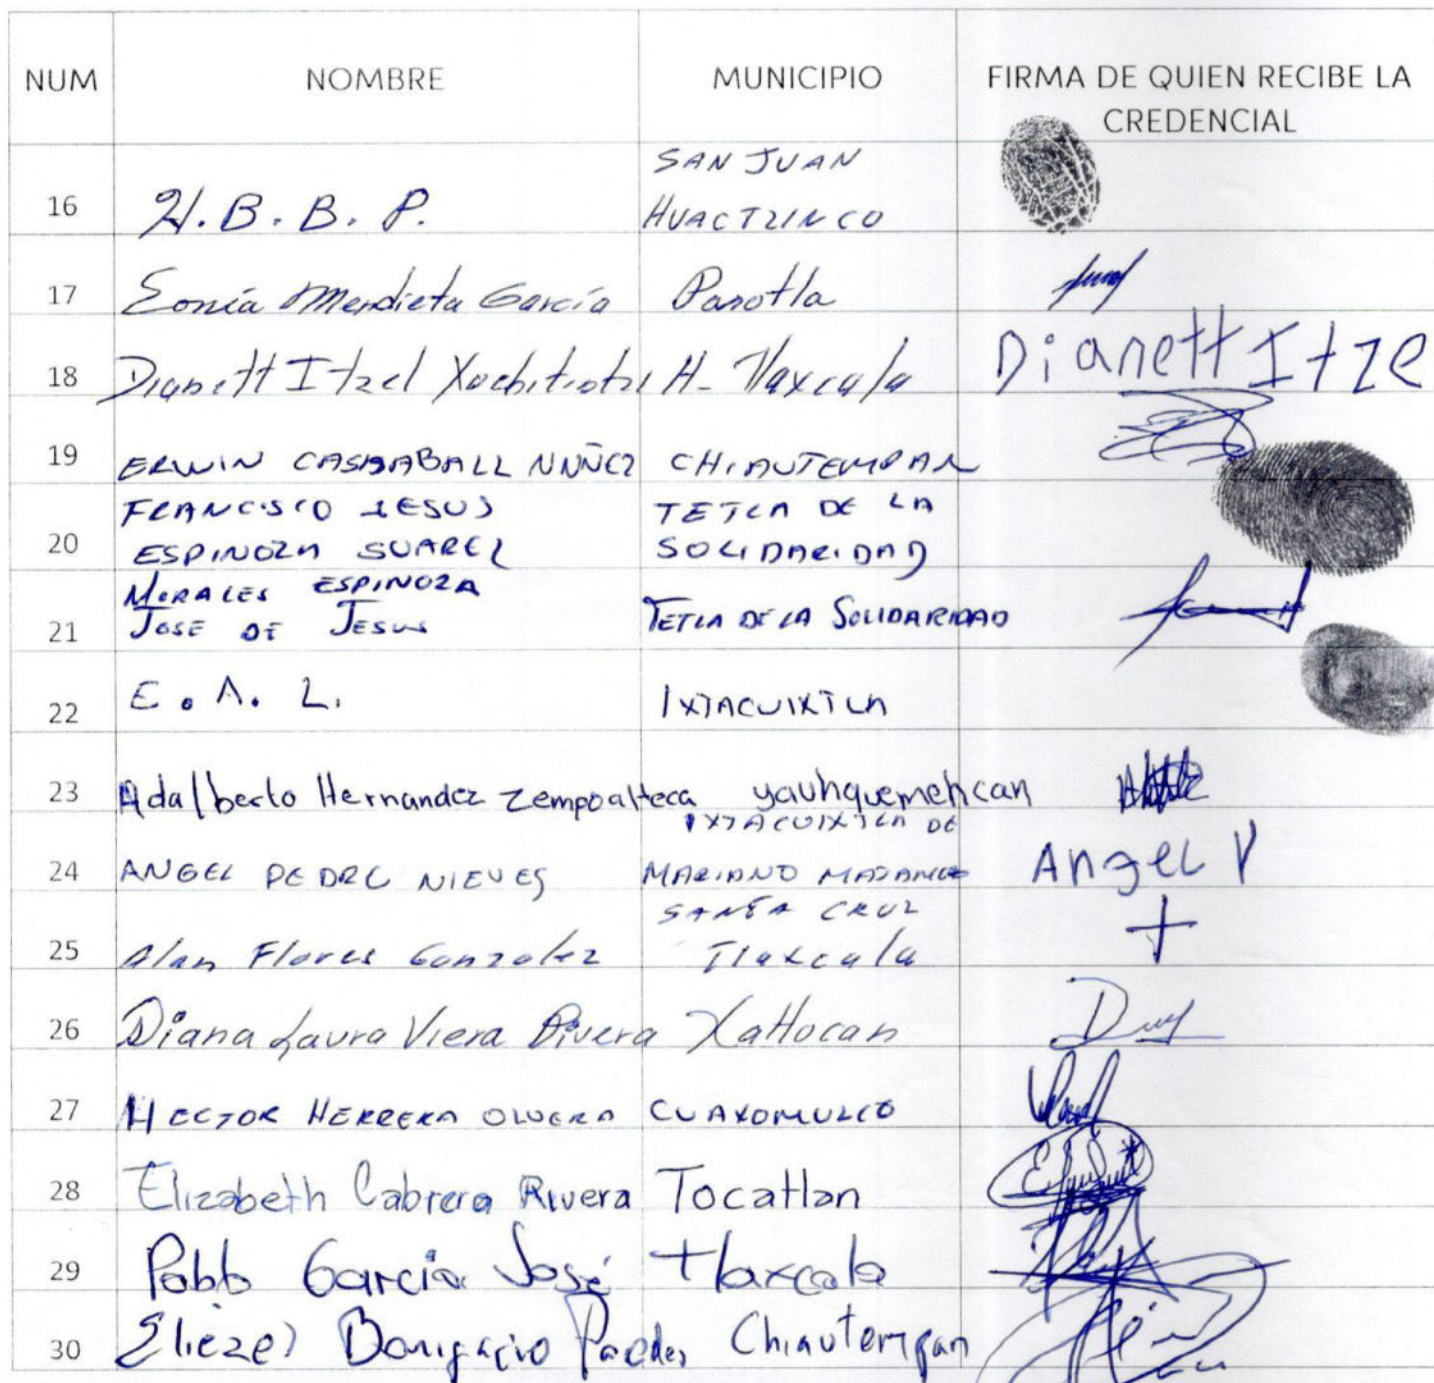 NUM NOMBRE MUNICIPIO FIRMA DE QUIEN RECIBE LA
CREDENCIAL
SAN JUAN
16 H. B. B. P. HUACTZINCO
17 Sonia Mendieta García Panotla
18 Dianett Itzel Xochitiotzi H- Tlaxcala Dianett Itze
19 ERWIN NUÑEZ CHIAUTEMPAN
FRANCISCO JESUS TETLA DE LA
20 ESPINOZA SUAREZ SOLIDARIDAD
MORALES ESPINOZA
21 JOSE DE JESUS TETLA DE LA SOLIDARIDAD
22 E. A. L. IXTACUIXTLA
23 Adalberto Hernandez Zempoalteca yauhquemehcan
IXTACUIXTLA DE
24 ANGEL PEDRO NIEVES MARIANO Angel P
SANTA CRUZ
25 Alan Flores Gonzalez Tlaxcala +
26 Diana Laura Viera Rivera Xaltocan
27 HECTOR HERRERA OLVERA CUAXOMULCO
28 Elizabeth Cabrera Rivera Tocatlan
29 Pablo Garcia José tlaxcala
30 Eliezer Bonifacio Paredes Chiautempan